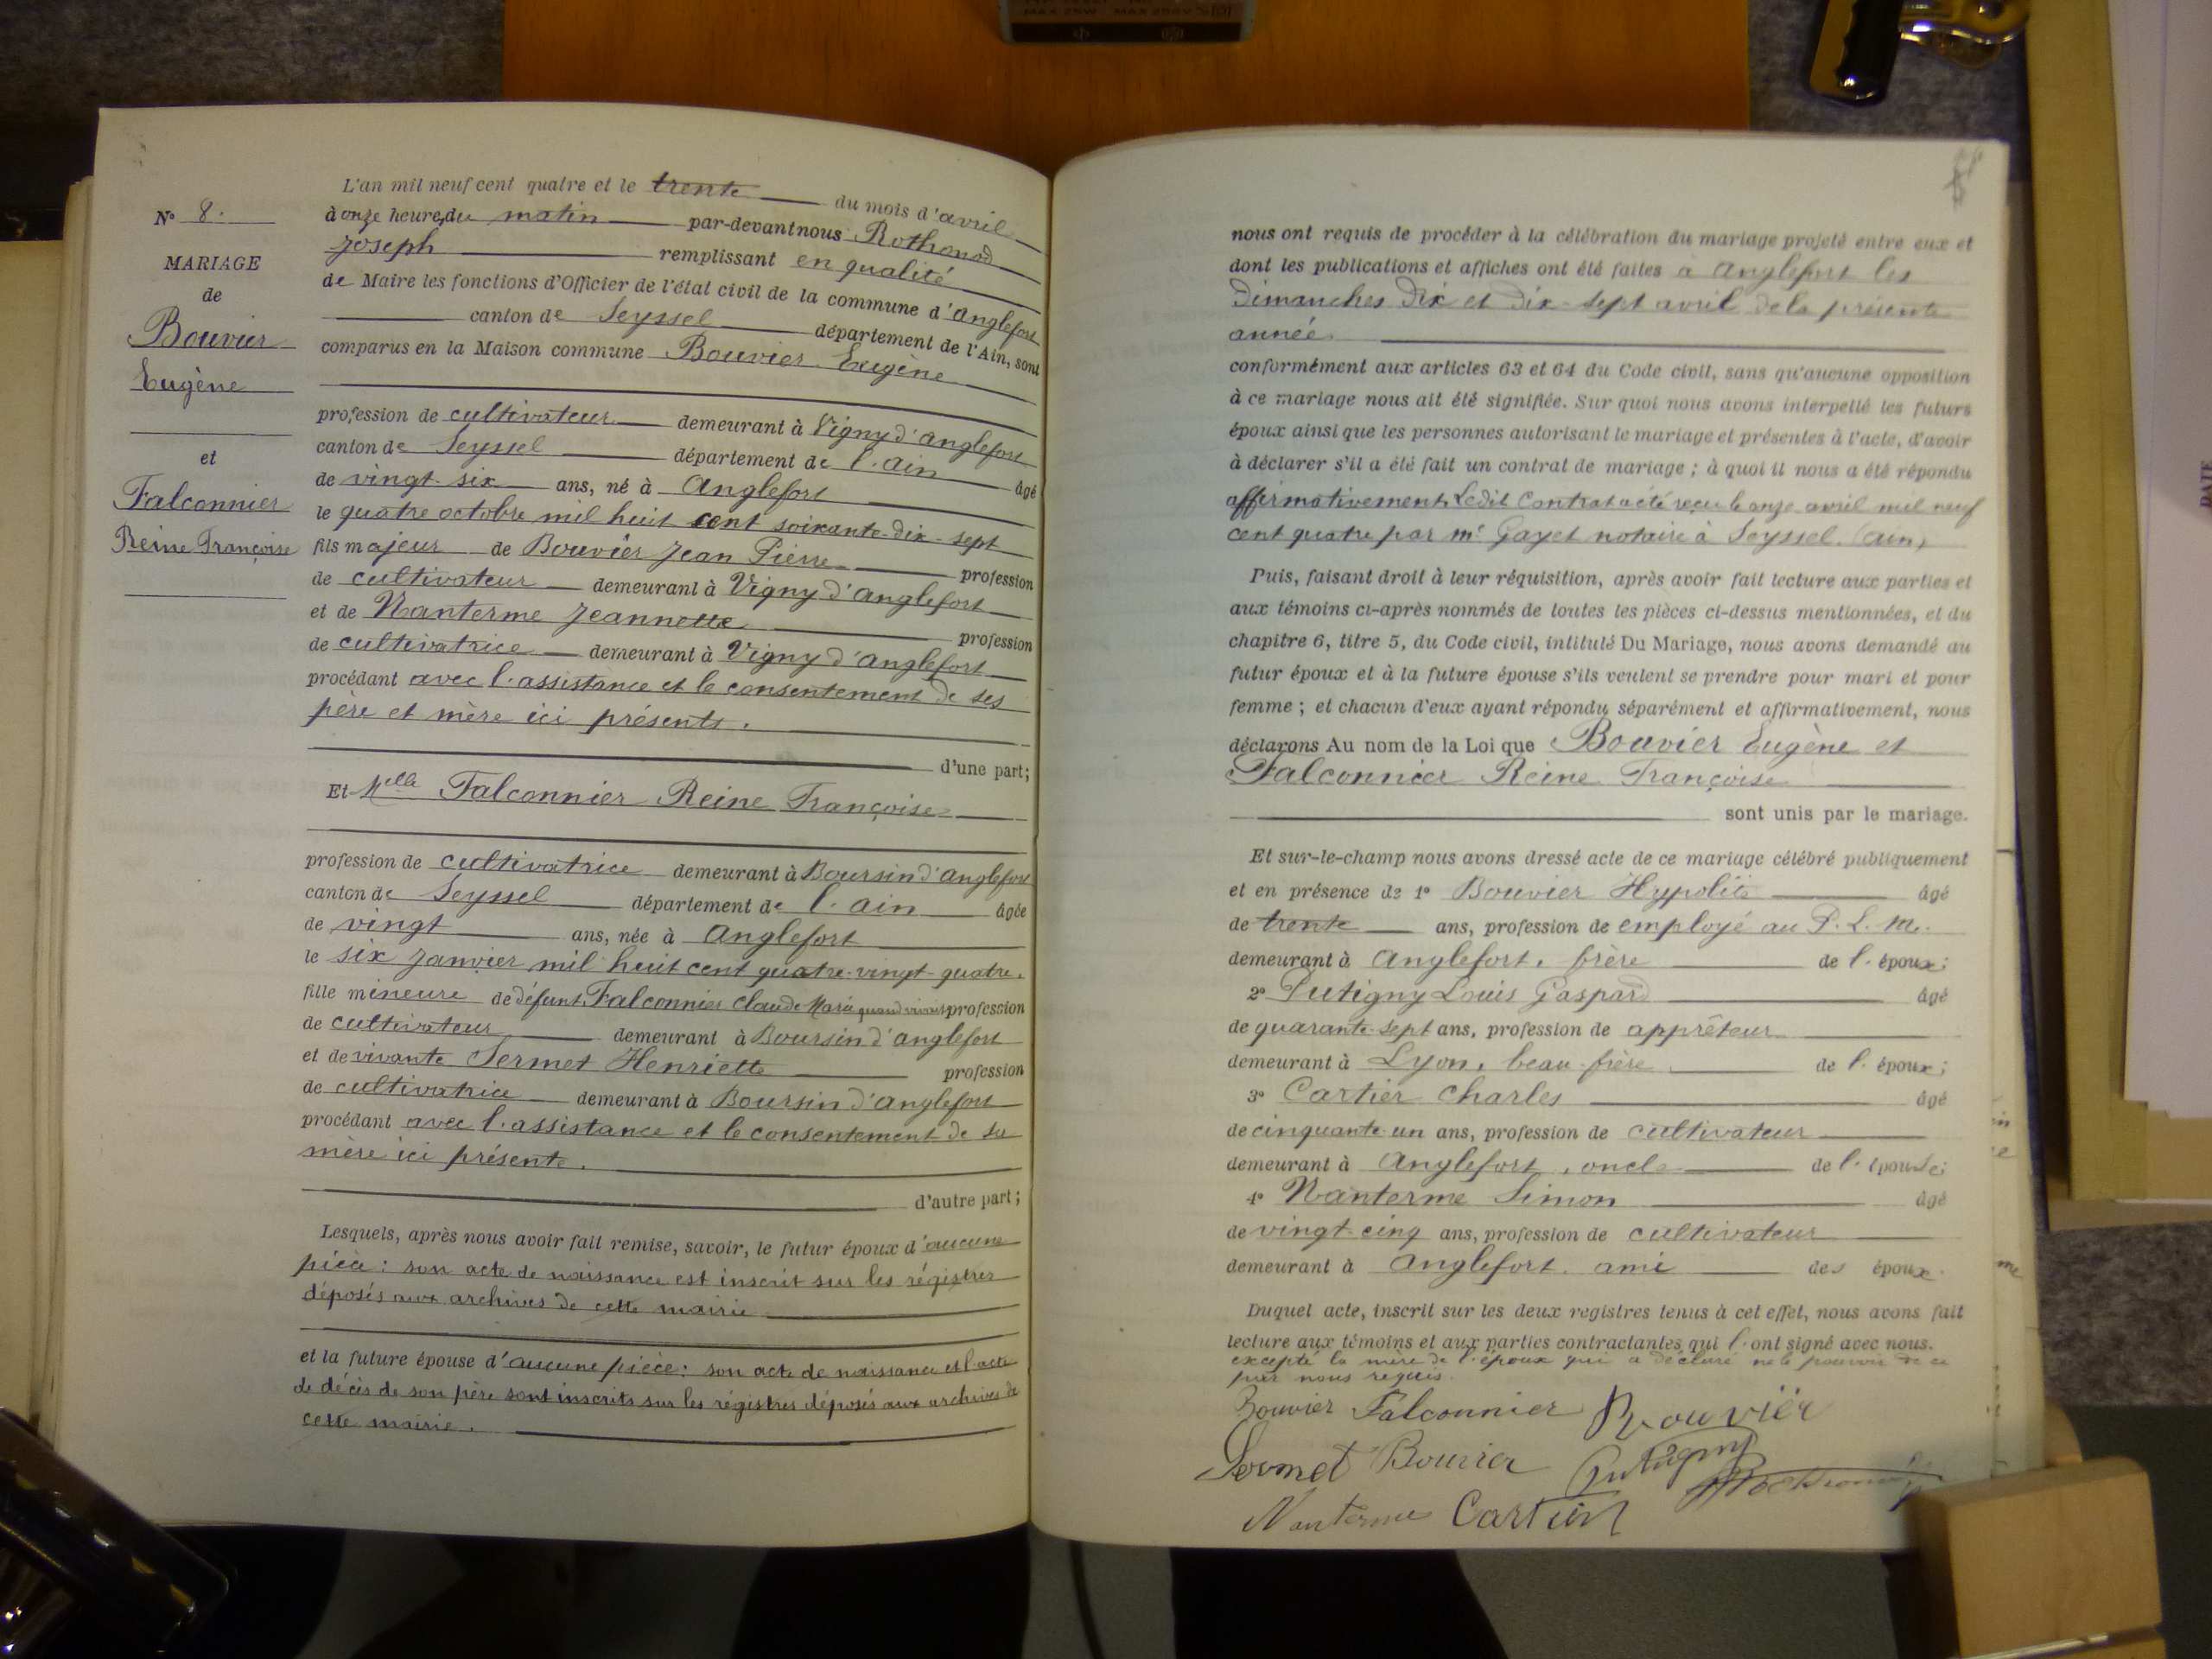 N° 8.
MARIAGE
de
Bouvier
Eugène
et
Falconnier
Reine Françoise
L'an mil neuf cent quatre et le trente du mois d'avril
à onze heures du matin par-devant nous Rothonod
Joseph remplissant en qualité
de Maire les fonctions d'Officier de l'état civil de la commune d'Anglefort
canton de Seyssel département de l'Ain, sont
comparus en la Maison commune Bouvier Eugène
profession de cultivateur demeurant à Vigny d'Anglefort
canton de Seyssel département de l'Ain âgé
de vingt-six ans, né à Anglefort
le quatre octobre mil huit cent soixante-dix-sept
fils majeur de Bouvier Jean Pierre profession
de cultivateur demeurant à Vigny d'Anglefort
et de Nanterme Jeannette profession
de cultivatrice demeurant à Vigny d'Anglefort
procédant avec l'assistance et le consentement de ses
père et mère ici présents.
d'une part;
Et Melle Falconnier Reine Françoise
profession de cultivatrice demeurant à Boursin d'Anglefort
canton de Seyssel département de l'Ain âgée
de vingt ans, née à Anglefort
le six janvier mil huit cent quatre-vingt-quatre.
fille mineure de défunt Falconnier Claude Marie quand vivait profession
de cultivateur demeurant à Boursin d'Anglefort
et de vivante Sermet Henriette profession
de cultivatrice demeurant à Boursin d'Anglefort
procédant avec l'assistance et le consentement de sa
mère ici présente.
d'autre part;
Lesquels, après nous avoir fait remise, savoir, le futur époux d'aucune
pièce: son acte de naissance est inscrit sur les régistres
déposés aux archives de cette mairie
et la future épouse d'aucune pièce: son acte de naissance et l'acte
de décès de son père sont inscrits sur les régistres déposés aux archives de
cette mairie.
nous ont requis de procéder à la célébration du mariage projeté entre eux et
dont les publications et affiches ont été faites à Anglefort les
Dimanches dix et dix-sept avril de la présente
année.
conformément aux articles 63 et 64 du Code civil, sans qu'aucune opposition
à ce mariage nous ait été signifiée. Sur quoi nous avons interpellé les futurs
époux ainsi que les personnes autorisant le mariage et présentes à l'acte, d'avoir
à déclarer s'il a été fait un contrat de mariage; à quoi il nous a été répondu
affirmativement. Ledit contrat a été reçu le onze avril mil neuf
cent quatre par Me Gayet notaire à Seyssel (Ain)
Puis, faisant droit à leur réquisition, après avoir fait lecture aux parties et
aux témoins ci-après nommés de toutes les pièces ci-dessus mentionnées, et du
chapitre 6, titre 5, du Code civil, intitulé Du Mariage, nous avons demandé au
futur époux et à la future épouse s'ils veulent se prendre pour mari et pour
femme; et chacun d'eux ayant répondu séparément et affirmativement, nous
déclarons Au nom de la Loi que Bouvier Eugène et
Falconnier Reine Françoise
sont unis par le mariage.
Et sur-le-champ nous avons dressé acte de ce mariage célébré publiquement
et en présence de 1° Bouvier Hypolite âgé
de trente ans, profession de employé au P.L.M.
demeurant à Anglefort, frère de l'époux;
2° Putigny Louis Gaspard âgé
de quarante-sept ans, profession de apprêteur
demeurant à Lyon, beau-frère de l'époux;
3° Cartier Charles âgé
de cinquante-un ans, profession de cultivateur
demeurant à Anglefort, oncle de l'épouse;
4° Nanterme Simon âgé
de vingt-cinq ans, profession de cultivateur
demeurant à Anglefort. ami des époux.
Duquel acte, inscrit sur les deux registres tenus à cet effet, nous avons fait
lecture aux témoins et aux parties contractantes qui l'ont signé avec nous.
excepté la mère de l'époux qui a déclaré ne le pouvoir de ce
par nous requis.
Bouvier Falconnier Bouvier
Sermet Bouvier Putigny
Nanterme Cartier
DATE